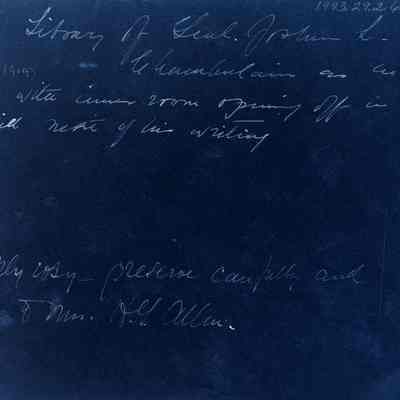 1983.29.26
Library of Genl. Joshua L.
Chamberlain as
with inner room opening off in
most of his writing
only copy — preserve carefully and
to Mrs. H. G. Allen.